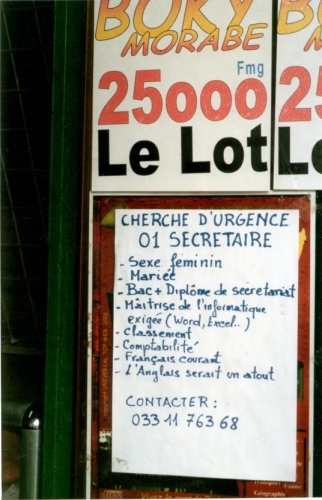 BOKY
MORABE
Fmg
25000
Le Lot
CHERCHE D'URGENCE
01 SECRETAIRE
- Sexe féminin
- Mariée
- Bac + Diplôme de secretariat
- Maitrise de l'informatique
exigée (Word, Excel..)
- Classement
- Comptabilité
- Français courant
- L'Anglais serait un atout
CONTACTER :
033 11 763 68